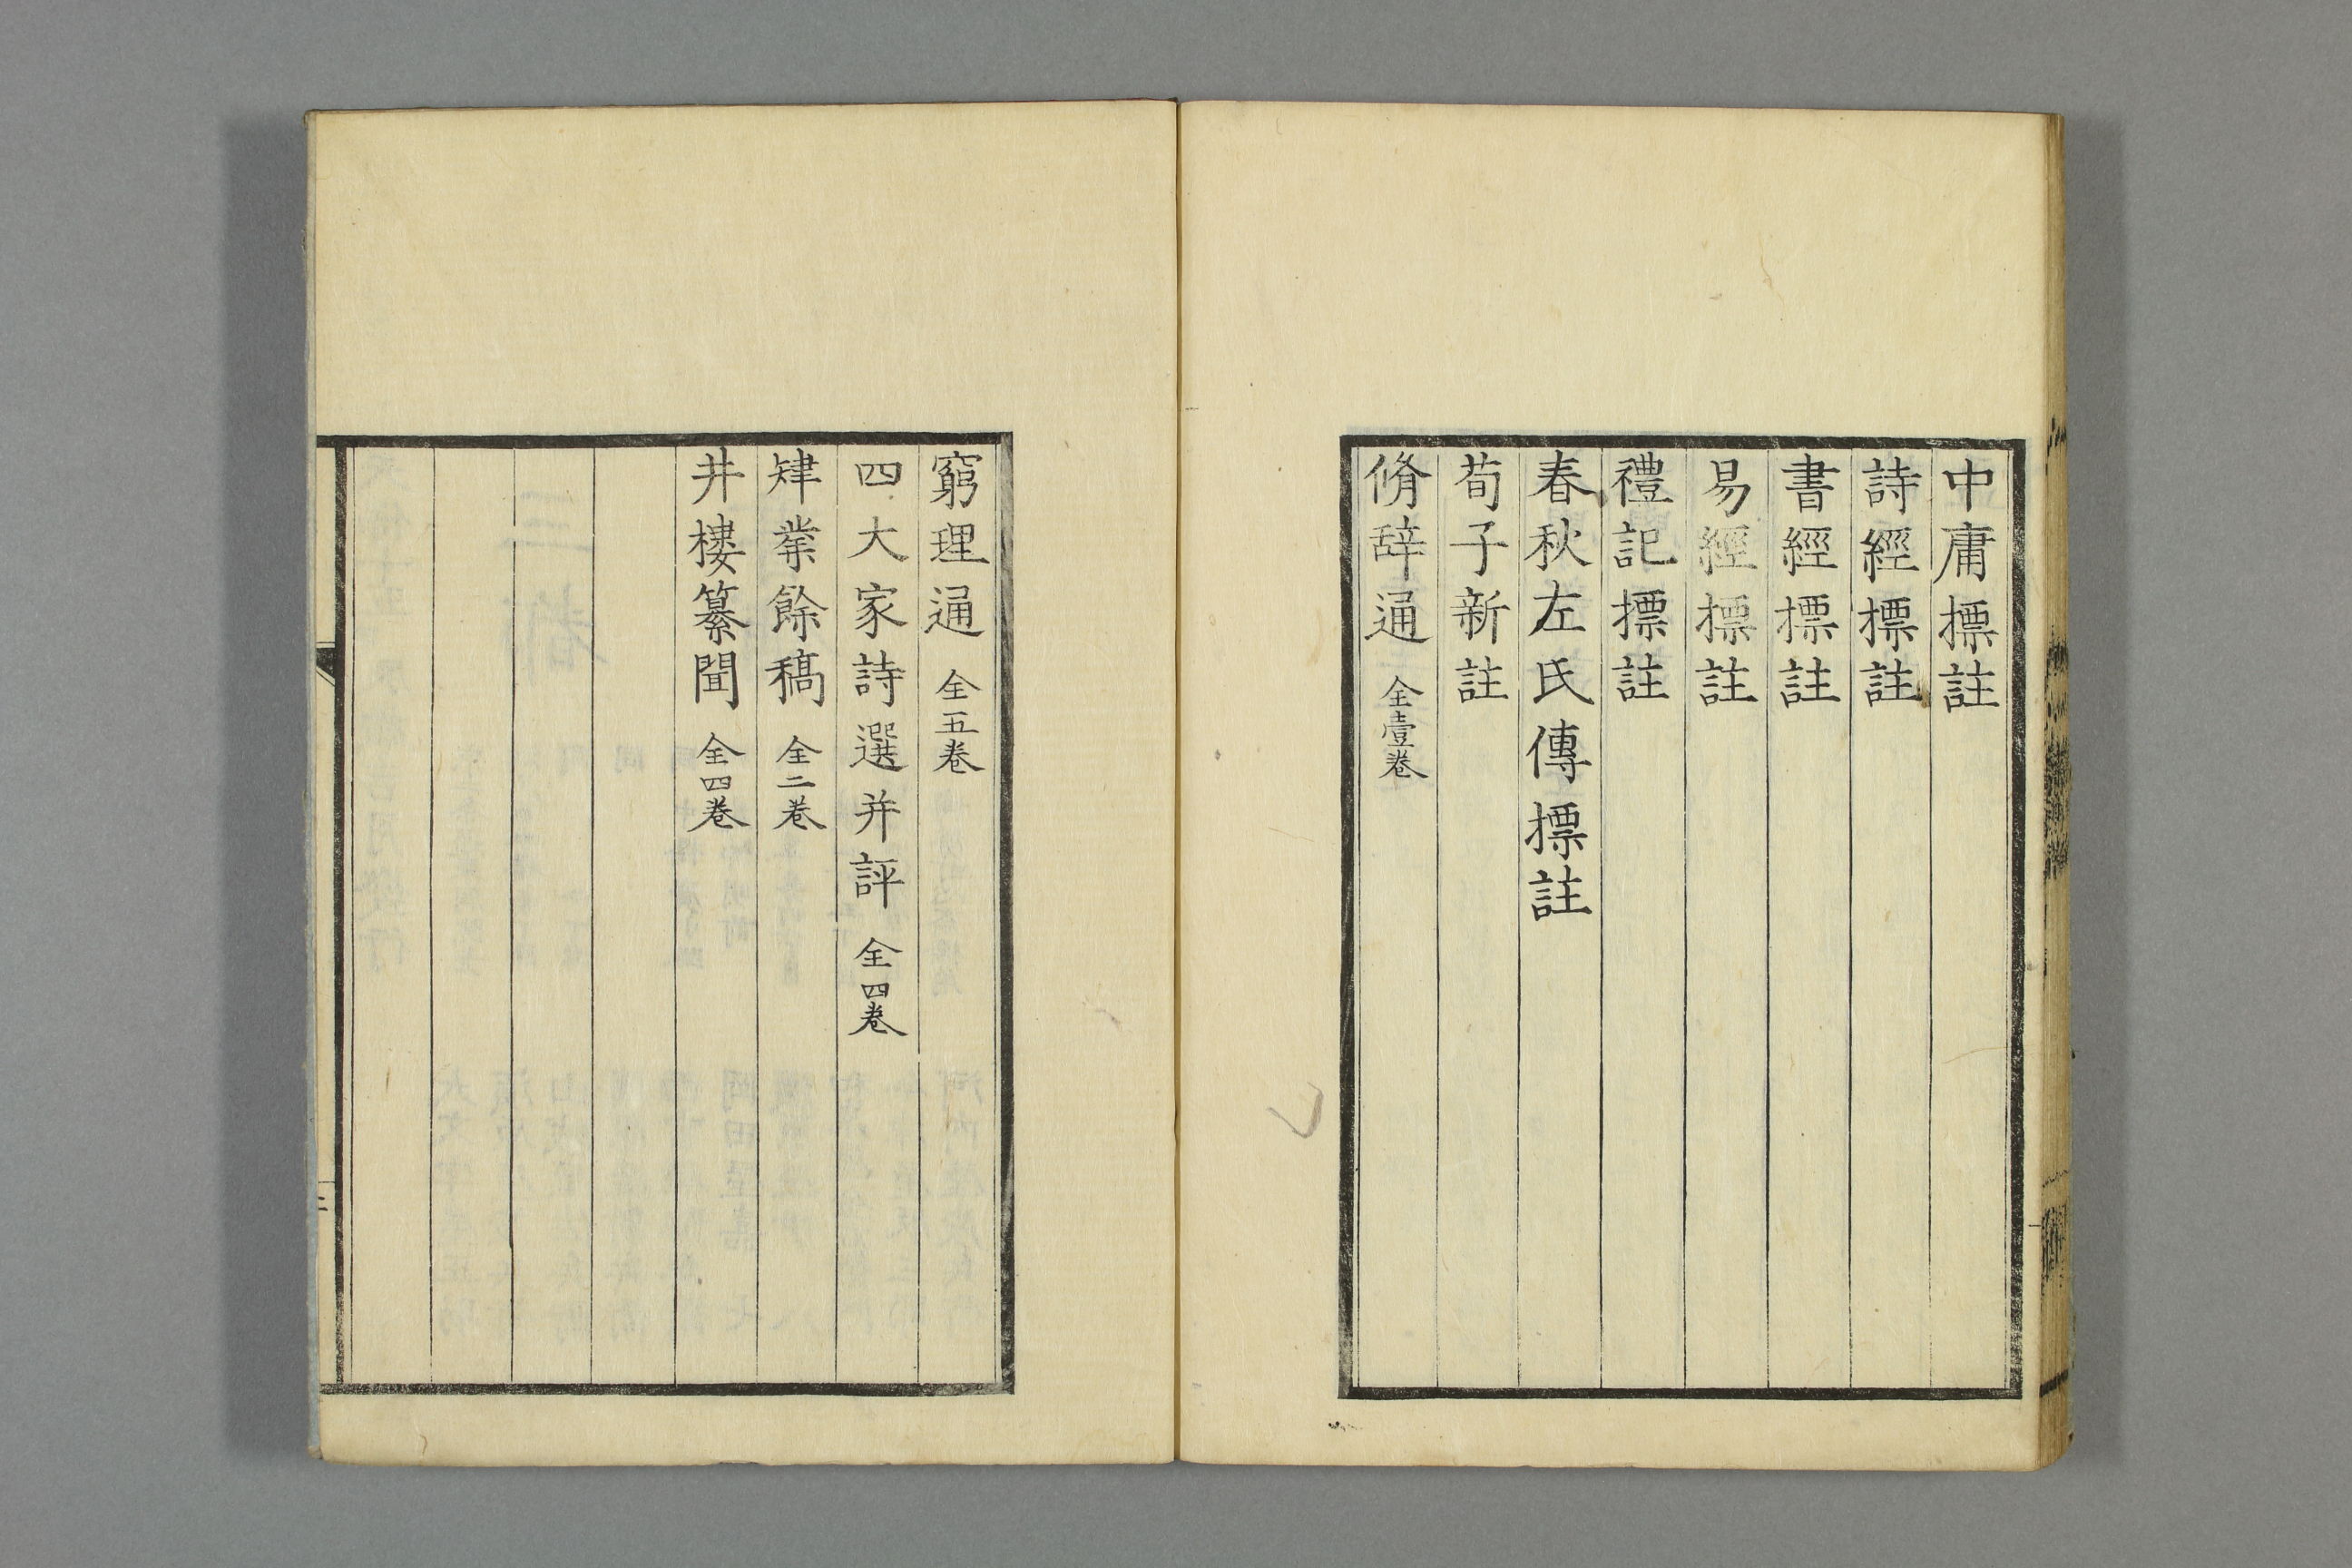 中庸標註
詩經標註
書經標註
易經標註
禮記標註
春秋左氏傳標註
荀子新註
脩辞通 全壹卷
窮理通 全五卷
四大家詩選并評 全四卷
肄業餘稿 全二卷
井樓纂聞 全四卷